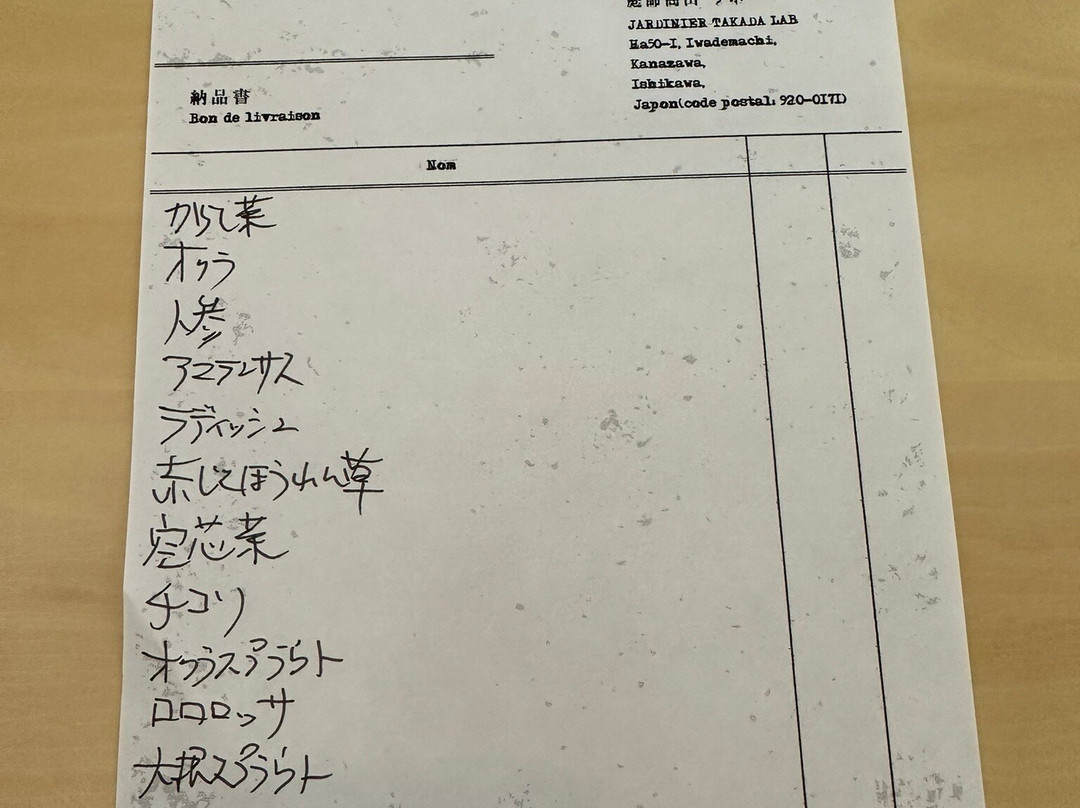 JARDINIER TAKADA LAB
Ha50-I, Iwademachi,
Kanazawa,
Ishikawa,
Japon(code postal: 920-0171)
納品書
Bon de livraison
Nom
からし菜
オクラ
人参
アマランサス
ラディッシュ
赤しそほうれん草
空芯菜
チコリ
オクラスプラウト
ロロロッサ
大根スプラウト